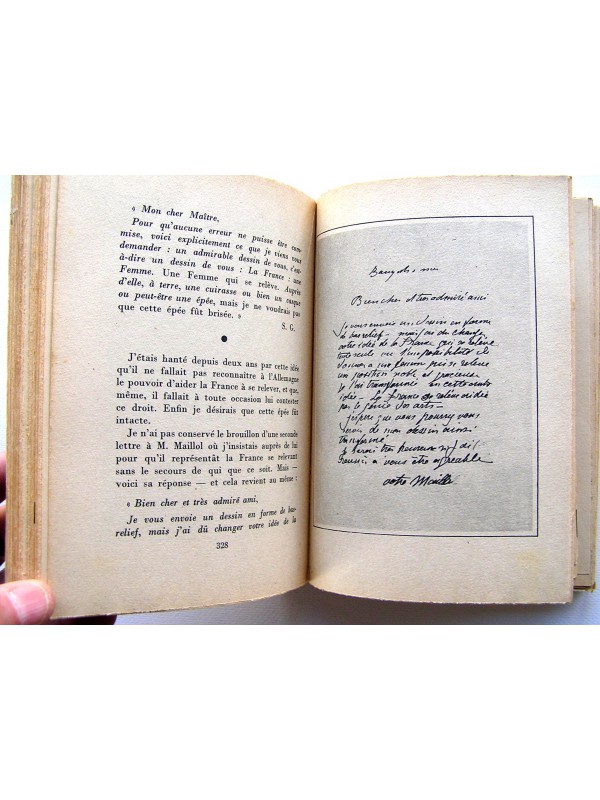 « Mon cher Maître,
Pour qu'aucune erreur ne puisse être com-
mise, voici explicitement ce que je viens vous
demander : un admirable dessin de vous, c'est-
à-dire un dessin de vous : La France : une
Femme. Une Femme qui se relève. Auprès
d'elle, à terre, une cuirasse ou bien un casque
ou peut-être une épée, mais je ne voudrais pas
que cette épée fût brisée. »
S. G.
J'étais hanté depuis deux ans par cette idée
qu'il ne fallait pas reconnaître à l'Allemagne
le pouvoir d'aider la France à se relever, et que,
même, il fallait à toute occasion lui contester
ce droit. Enfin je désirais que cette épée fût
intacte.
Je n'ai pas conservé le brouillon d'une seconde
lettre à M. Maillol où j'insistais auprès de lui
pour qu'il représentât la France se relevant
sans le secours de qui que ce soit. Mais —
voici sa réponse — et cela revient au même :
« Bien cher et très admiré ami,
Je vous envoie un dessin en forme de bas-
relief, mais j'ai dû changer votre idée de la
328
Banyuls s mer
Bien cher et tres admiré ami
je vous envoie un dessin en forme
de bas relief — mais j'ai du changer
votre idée de la France qui se relève
toute seule
une position noble et gracieuse
je l'ai transformée en cette autre
idée — La France relevée
par le génie des arts —
j'espère que vous pourrez vous
servir de mon dessin ainsi
transformé
je serais tres heureux si j'ai
à vous être agreable
votre Maillol